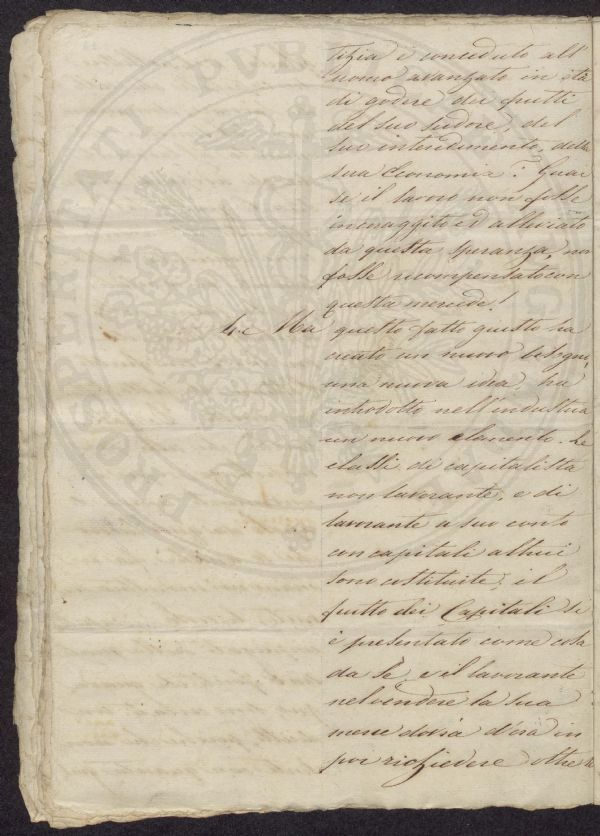 tizia è conceduto all'
uomo avanzato in età
di godere dei frutti
del suo sudore, del
suo intendimento, della
sua economia? Guai
se il lavoro non fosse
incoraggito ed alleviato
da questa speranza, non
fosse ricompensato con
questa mercede!
4.e Ma questo fatto giusto ha
creato un nuovo bisogno,
una nuova idea, ha
introdotto nell'industria
un nuovo elemento. Le
classi di capitalista
non lavorante, e di
lavorante a suo conto
con capitali altrui
sono costituite; il
frutto dei Capitali si
è presentato come cosa
da sè, e il lavorante
nel vendere la sua
merce dovrà d'ora in
poi richiedere oltre
PROSPERITATI PUB